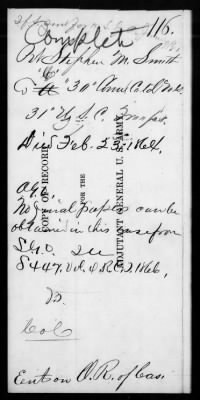 116.
Complete
Pvt Stephen M. Smith
"C"
30" Conn Cold Vols.
31" U.S.C. Troops.
Died Feb. 23, 1864.
COPY OF RECORD
FOR THE
ADJUTANT GENERAL U. S. ARMY
A.G.
No final papers can be
obtained in this case from
S.G.O. See
8447. Vol. 4 R.&P. 1866,
Col
Ent on O.R. of Cas.